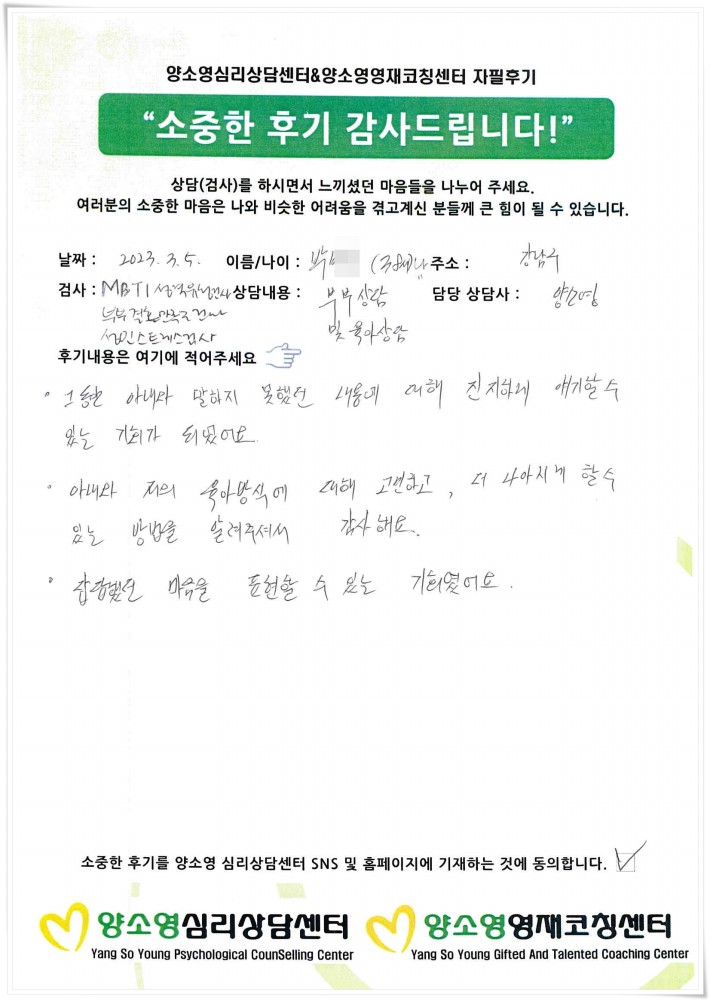 양소영심리상담센터&양소영영재코칭센터 자필후기
“소중한 후기 감사드립니다!”
상담(검사)를 하시면서 느끼셨던 마음들을 나누어 주세요.
여러분의 소중한 마음은 나와 비슷한 어려움을 겪고계신 분들께 큰 힘이 될 수 있습니다.
날짜 : 2023. 3. 5. 이름/나이 : 박 (38세) 주소 : 강남구
검사 : MBTI 성격유형검사 상담내용 : 부부상담 담당 상담사 : 양소영
부부 결혼만족도검사 및 육아상담
성인스트레스검사
후기내용은 여기에 적어주세요
• 그동안 아내와 말하지 못했던 내용에 대해 진지하게 얘기할 수
있는 기회가 되었어요.
• 아내와 저의 육아방식에 대해 고민하고, 더 나아지게 할 수
있는 방법을 알려주셔서 감사해요.
• 답답했던 마음을 표현할 수 있는 기회였어요.
소중한 후기를 양소영 심리상담센터 SNS 및 홈페이지에 기재하는 것에 동의합니다.
양소영심리상담센터 양소영영재코칭센터
Yang So Young Psychological CounSelling Center Yang So Young Gifted And Talented Coaching Center